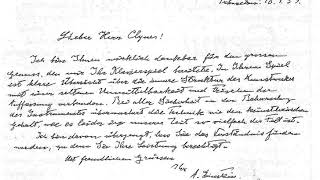 Lieber Herr Clynes!
Ich bin Ihnen wirklich dankbar für den grossen
Genuss, den mir Ihr Klavierspiel bereitete. In Ihrem Spiel
ist klare Übersicht über die innere Struktur des Kunstwerkes
mit einer seltenen Unmittelbarkeit und Frische der
Auffassung verbunden. Bei aller Sicherheit in der Beherrschung
des Instrumentes die Technik nie den künstlerischen
Gehalt, wie es leider in unserer Zeit so vielfach der Fall ist.
Ich bin davon überzeugt, dass Sie das Verständnis finden
werden, zu dem Sie Ihre Leistung berechtigt.
Mit freundlichen Grüssen
Ihr
A. Einstein